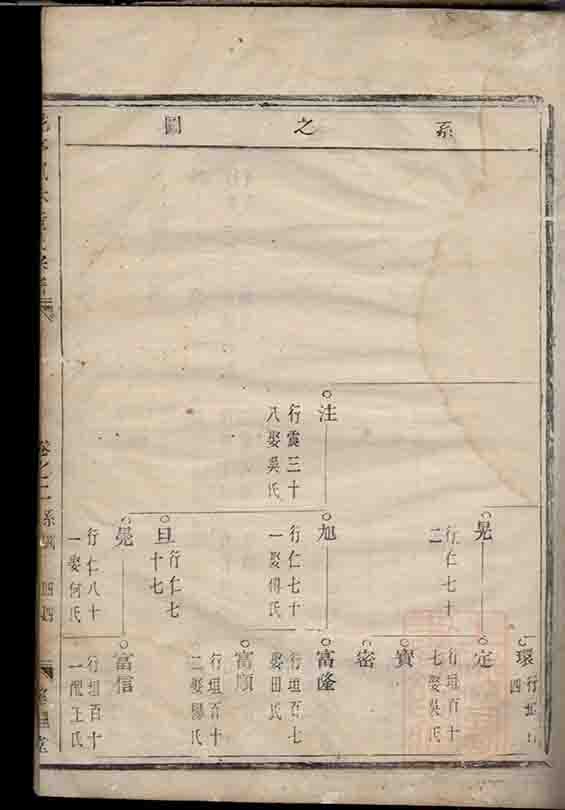 系之圖
注
行震三十
八娶吳氏
晃
行仁七十
二
旭
行仁七十
一娶傅氏
旦
行仁七
十七
行仁八十
一娶何氏
環
四
定
行垣百十
七娶吳氏
實
密
富隆
行垣百七
娶田氏
富順
行垣百十
二娶楊氏
富信
行垣百十
一配王氏
卷之二
系圖